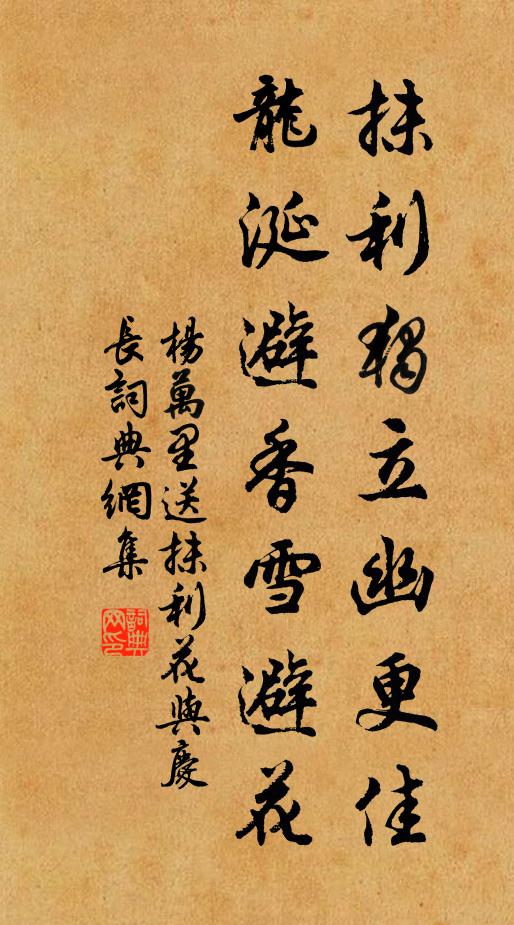 抹利獨立幽更佳
龍涎避香雪避花
楊萬里送抹利花與慶
長詞典網集
詞典网印